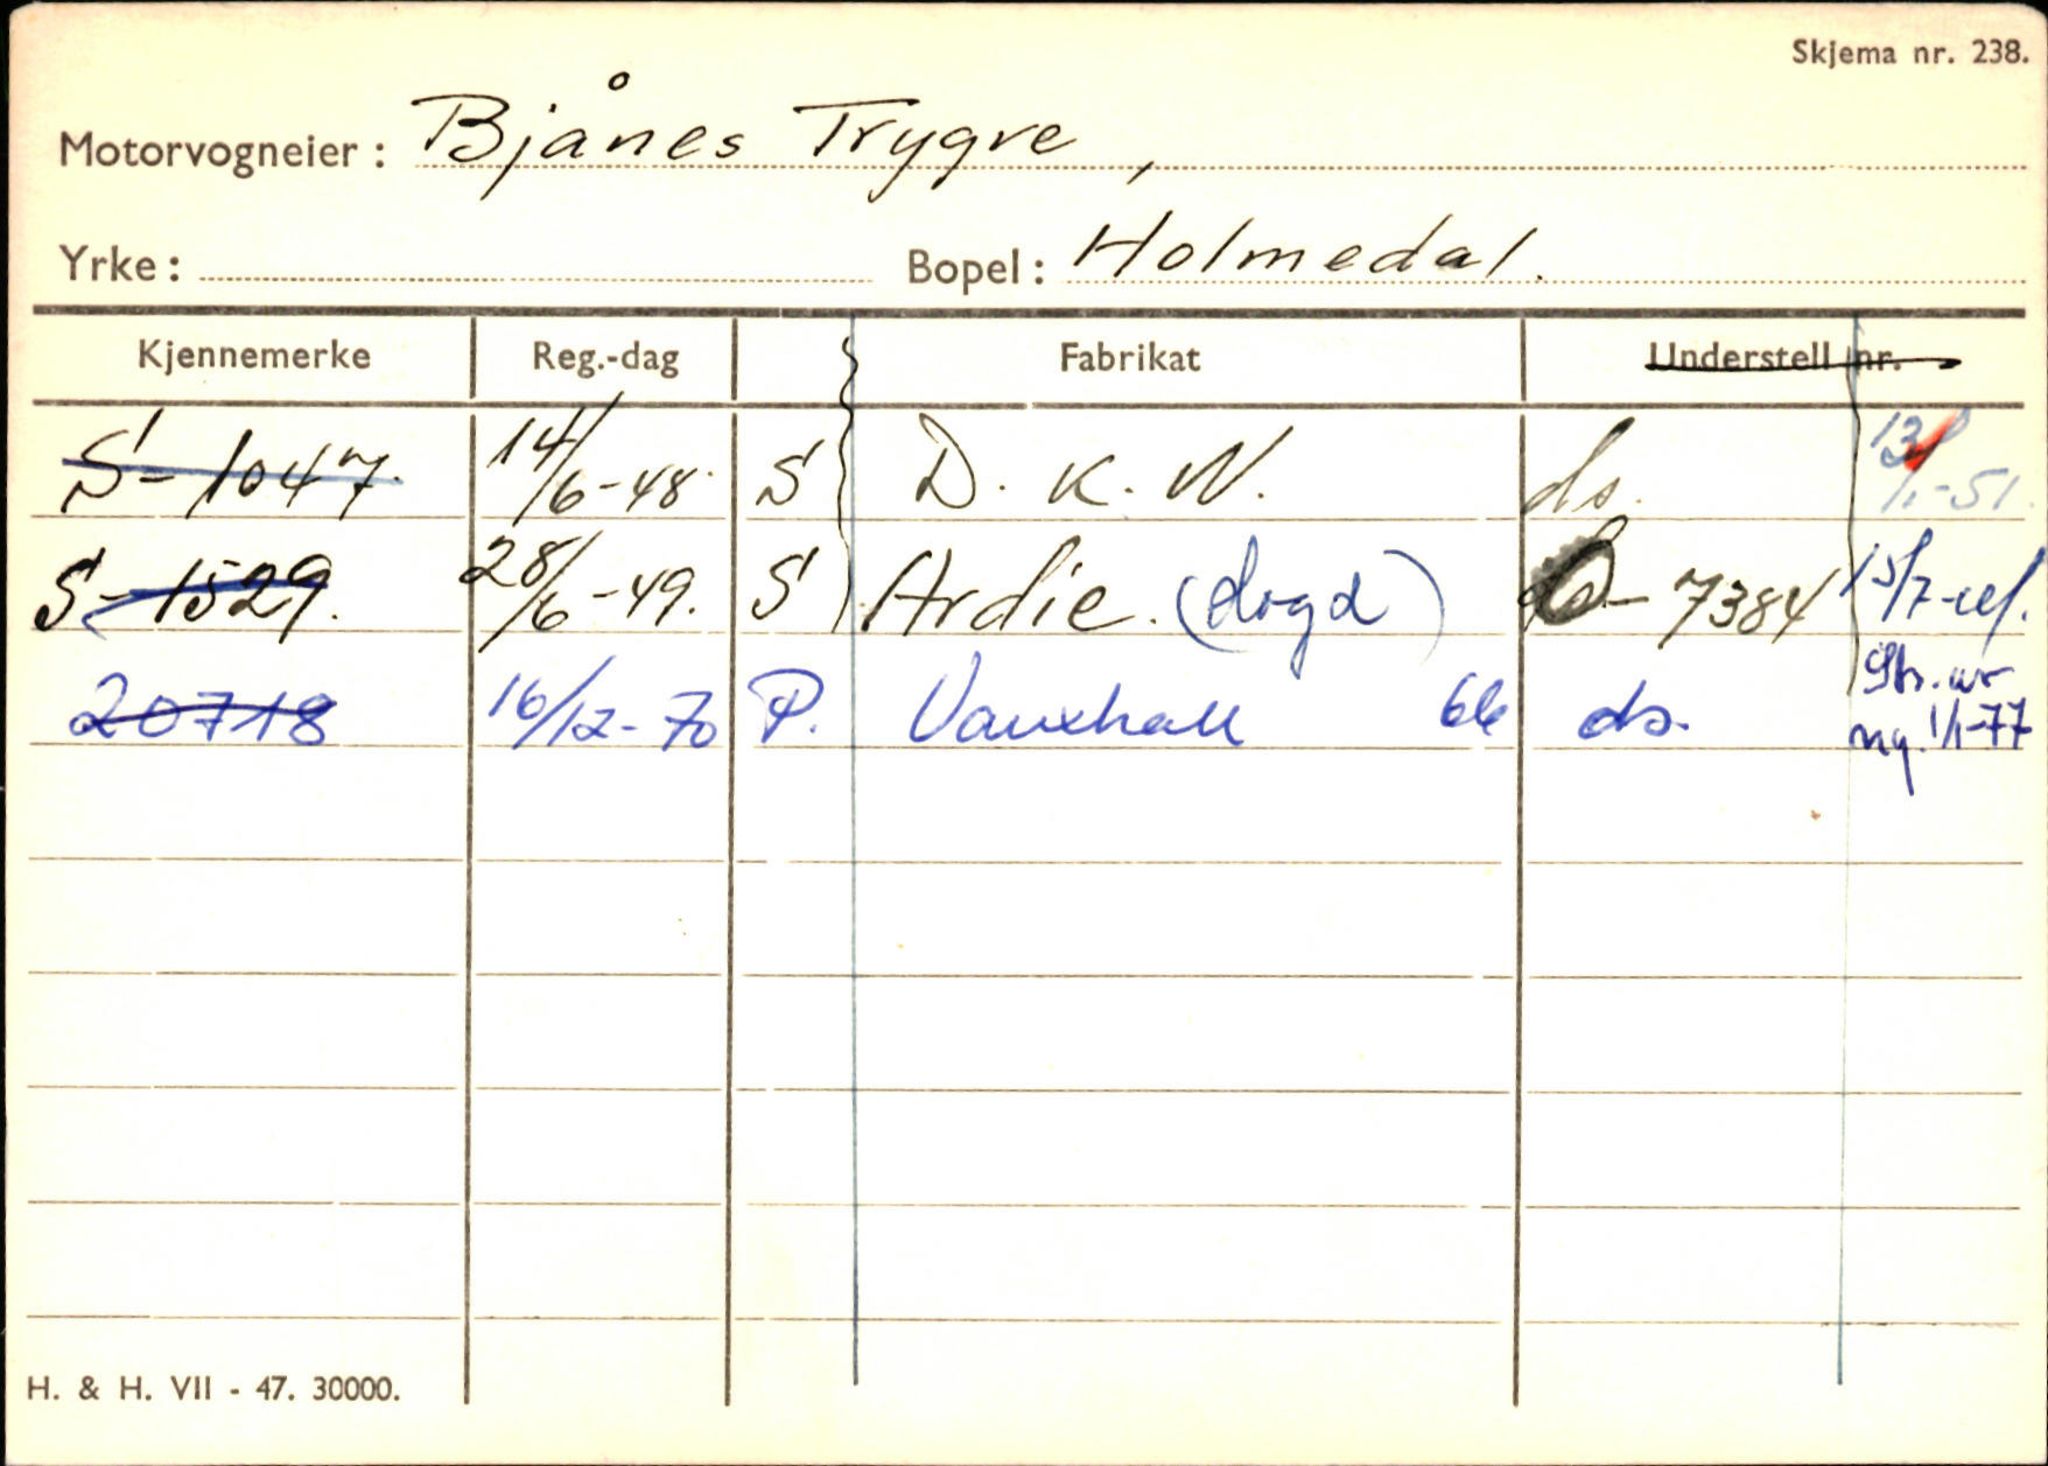 Skjema nr. 238.
Motorvogneier: Bjånes Trygve,
Yrke: Bopel: Holmedal.
Kjennemerke Reg.-dag Fabrikat Understell nr.
S-1047. 14/6-48. S D. K. W. ds. 13/1-51.
S-1529. 28/6-49. S Ardie. (dogd) ds.-7384 15/7-
20718 16/12-70 P. Vauxhall 66 ds. 1/1-77
H. & H. VII - 47. 30000.